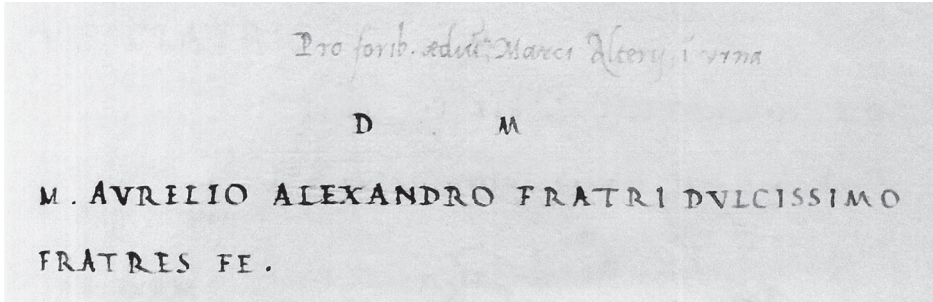 Pro forib. ædiu; Marci Altery i vrna
D M
M. AVRELIO ALEXANDRO FRATRI DVLCISSIMO
FRATRES FE.